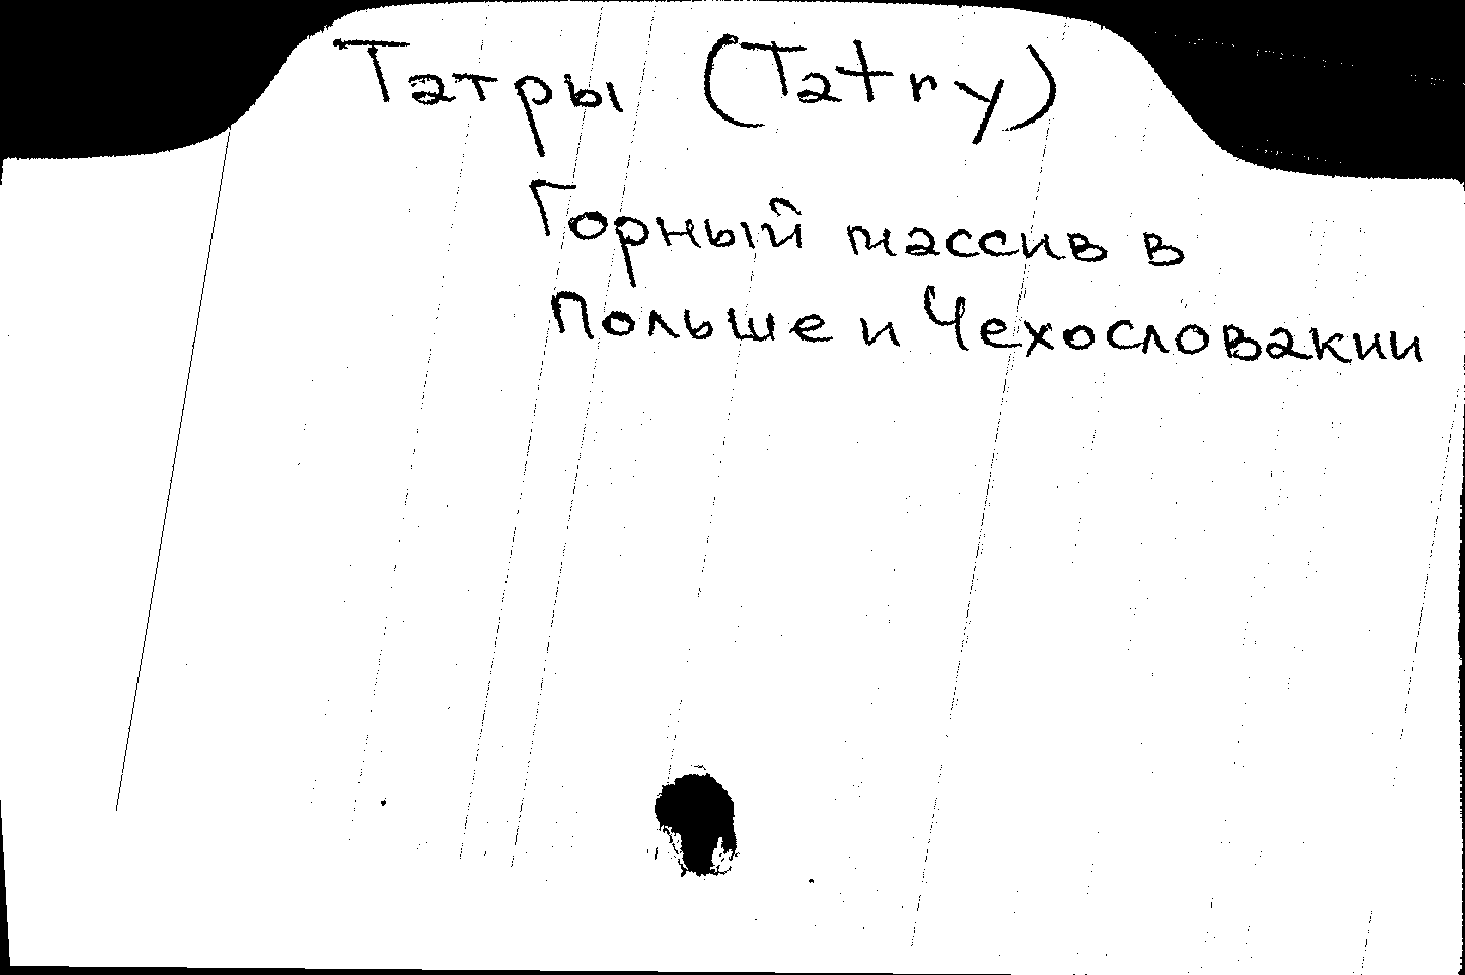 Татры (Tatry)
Горный массив в
Польше и Чехословакии